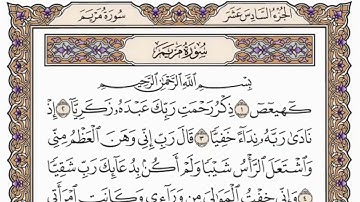 الجزء السادس عشر
سورة مريم
سورة مريم
بِسْمِ اللَّهِ الرَّحْمَٰنِ الرَّحِيمِ
كهيعص ١ ذِكْرُ رَحْمَتِ رَبِّكَ عَبْدَهُ زَكَرِيَّا ٢ إِذْ
نَادَىٰ رَبَّهُ نِدَاءً خَفِيًّا ٣ قَالَ رَبِّ إِنِّي وَهَنَ الْعَظْمُ مِنِّي
وَاشْتَعَلَ الرَّأْسُ شَيْبًا وَلَمْ أَكُن بِدُعَائِكَ رَبِّ شَقِيًّا
٤ وَإِنِّي خِفْتُ الْمَوَالِيَ مِن وَرَاءِي وَكَانَتِ امْرَأَتِي